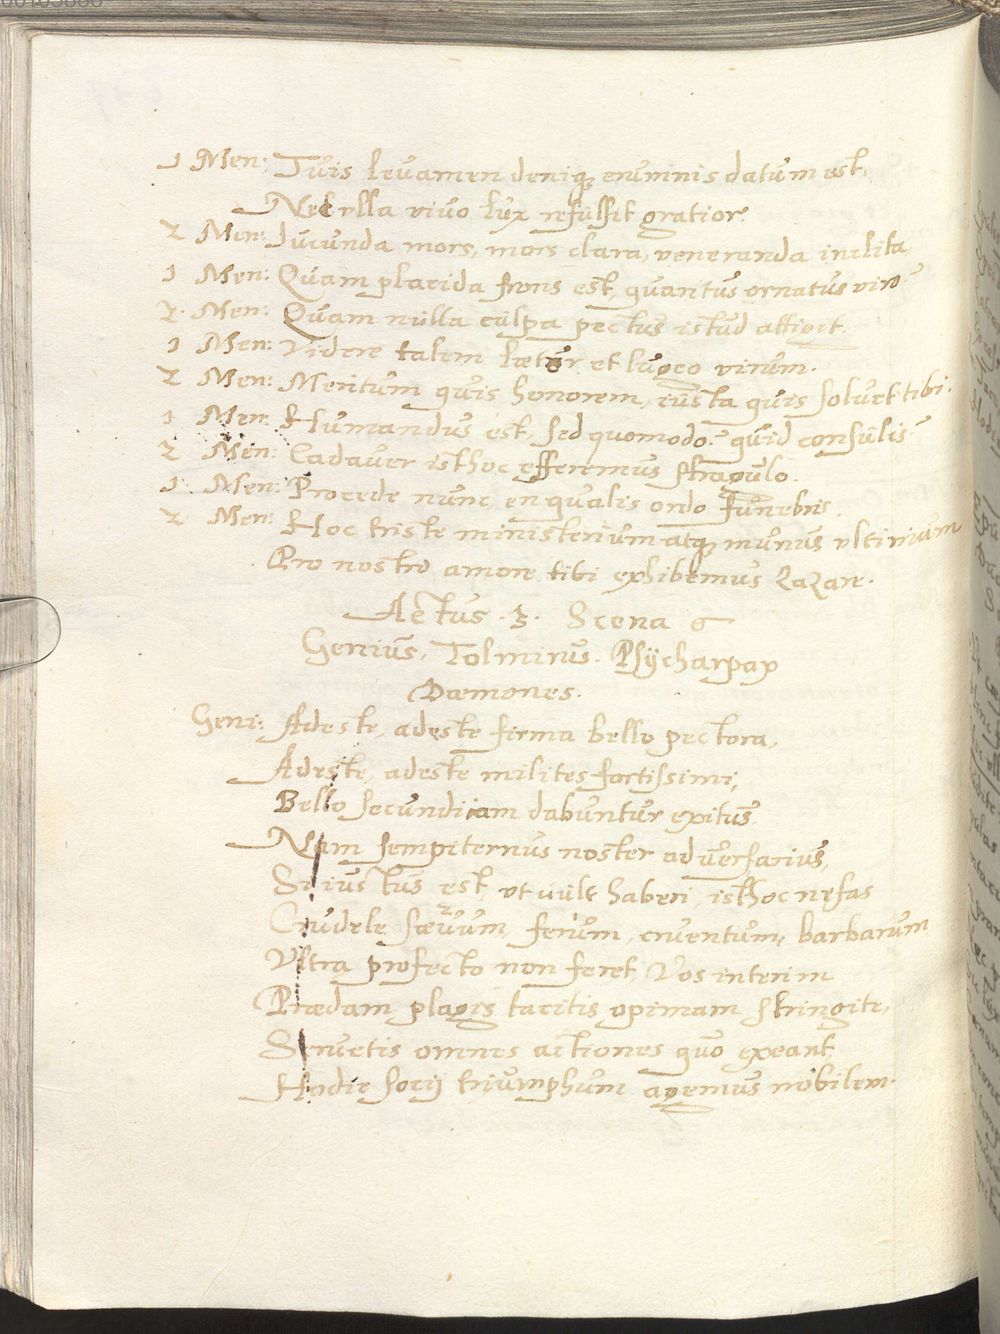 1 Men: Tuis levamen deniq; erumnis datum est,
Nec ulla vivo lux refulsit gratior.
2 Men: Jucunda mors, mors clara, veneranda inclita
1 Men: Quam placida frons est, quantus ornatus viro
2. Men: Quam nulla culpa pectus istud attigit.
1 Men: Videre talem lætor, et lugeo virum.
2 Men: Meritum quis honorem, iusta quis solvet tibi.
1 Men: Humandus est, sed quomodo? quid consulis
2 Men: Cadaver isthoc efferemus stragulo.
1. Men: Procede nunc en qualis ordo funebris.
2 Men: Hoc triste ministerium atq; munus ultimum
Pro nostro amore tibi exhibemus Lazare.
Actus .3. Scena 6
Genius, Tolmirus. Psÿcharpax
Dæmones.
Geni: Adeste, adeste firma bello pectora,
Adeste, adeste milites fortissimi,
Bello secundi iam dabuntur exitus
Nam sempiternus noster adversarius,
Si iustus est, ut vult haberi, isthoc nefas
Crudele sævum, ferum, cruentum, barbarum
Ultra profecto non feret, Vos interim
Prædam plagis tacitis opimam stringite,
Servetis omnes actiones quo exeant
Hodie socij triumphum agemus nobilem.